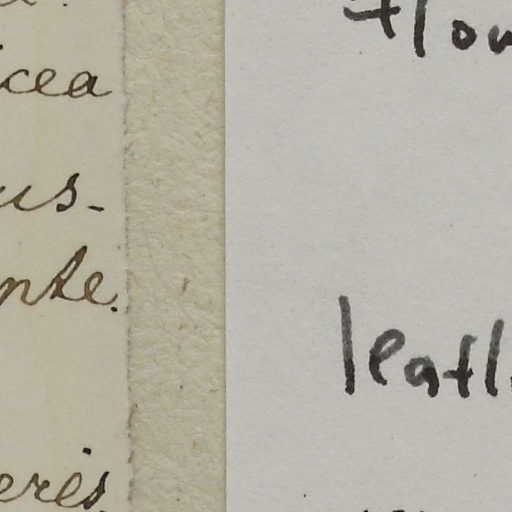 icea
us-
nte.
eris
flow
leafl